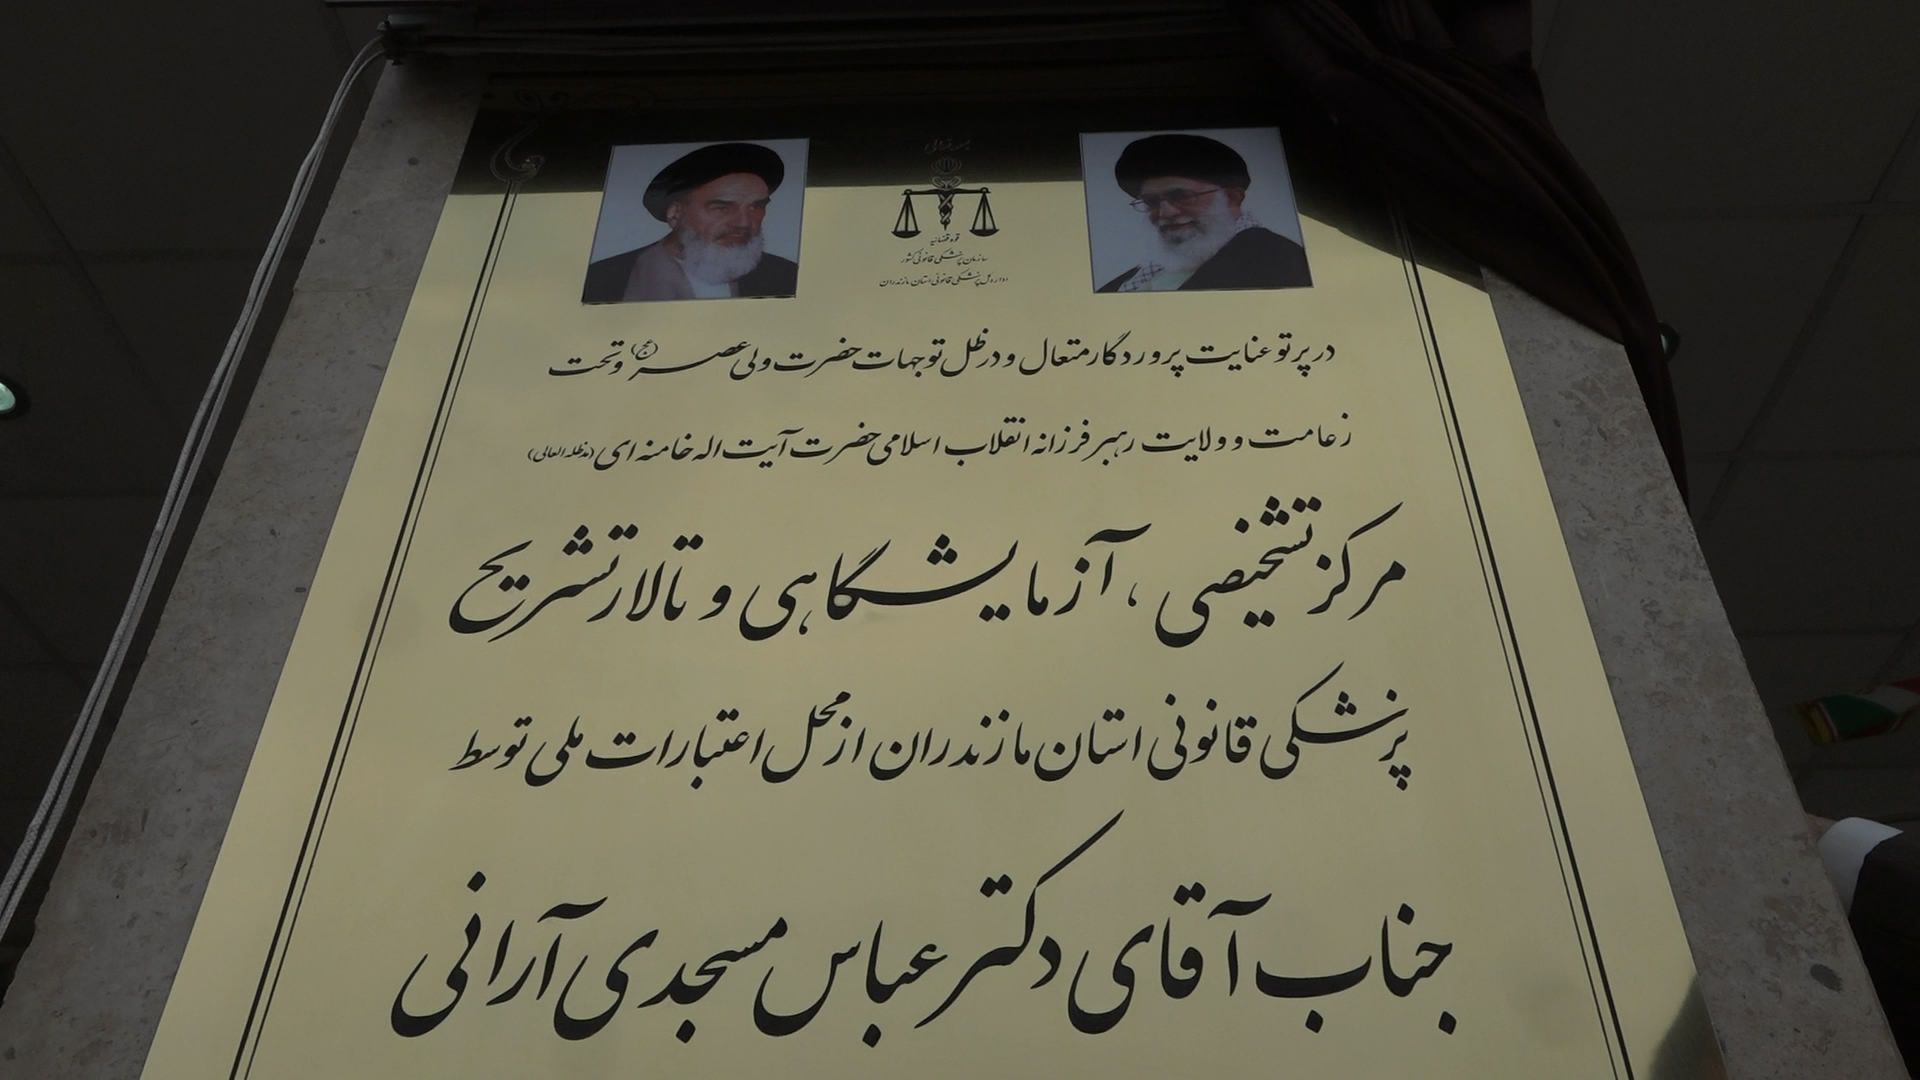 بسمه تعالی
قوه قضائیه
سازمان پزشکی قانونی کشور
اداره کل پزشکی قانونی استان مازندران
در پرتو عنایت پروردگار متعال و در ظل توجهات حضرت ولی عصر (عج) و تحت
زعامت و ولایت رهبر فرزانه انقلاب اسلامی حضرت آیت اله خامنه ای (مدظله العالی)
مرکز تشخیصی ، آزمایشگاهی و تالار تشریح
پزشکی قانونی استان مازندران از محل اعتبارات ملی توسط
جناب آقای دکتر عباس مسجدی آرانی